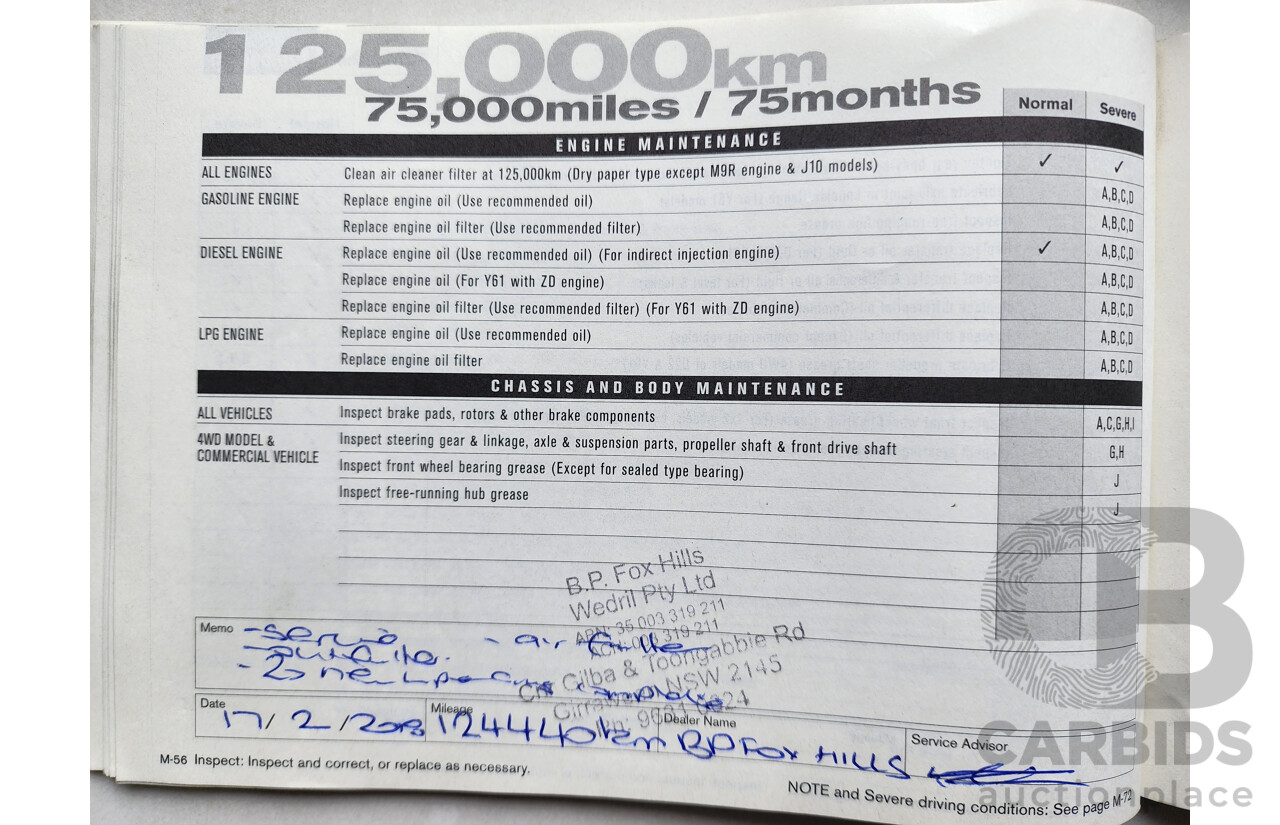 125,000km
75,000miles / 75months
Normal Severe
ENGINE MAINTENANCE
ALL ENGINES Clean air cleaner filter at 125,000km (Dry paper type except M9R engine & J10 models) ✓ ✓
GASOLINE ENGINE Replace engine oil (Use recommended oil) A,B,C,D
Replace engine oil filter (Use recommended filter) A,B,C,D
DIESEL ENGINE Replace engine oil (Use recommended oil) (For indirect injection engine) ✓ A,B,C,D
Replace engine oil (For Y61 with ZD engine) A,B,C,D
Replace engine oil filter (Use recommended filter) (For Y61 with ZD engine) A,B,C,D
LPG ENGINE Replace engine oil (Use recommended oil) A,B,C,D
Replace engine oil filter A,B,C,D
CHASSIS AND BODY MAINTENANCE
ALL VEHICLES Inspect brake pads, rotors & other brake components A,C,G,H,I
4WD MODEL &
COMMERCIAL VEHICLE
Inspect steering gear & linkage, axle & suspension parts, propeller shaft & front drive shaft G,H
Inspect front wheel bearing grease (Except for sealed type bearing) J
Inspect free-running hub grease J
B.P. Fox Hills
Wedril Pty Ltd
ABN: 35 003 319 211
ACN: 003 319 211
Cnr Gilba & Toongabbie Rd
Girraween NSW 2145
Memo - service - air filter
Date Mileage Dealer Name Service Advisor
17/2/ 124440km BP FOX HILLS
M-56 Inspect: Inspect and correct, or replace as necessary.
NOTE and Severe driving conditions: See page M-72
CB
CARBIDS
auctionplace